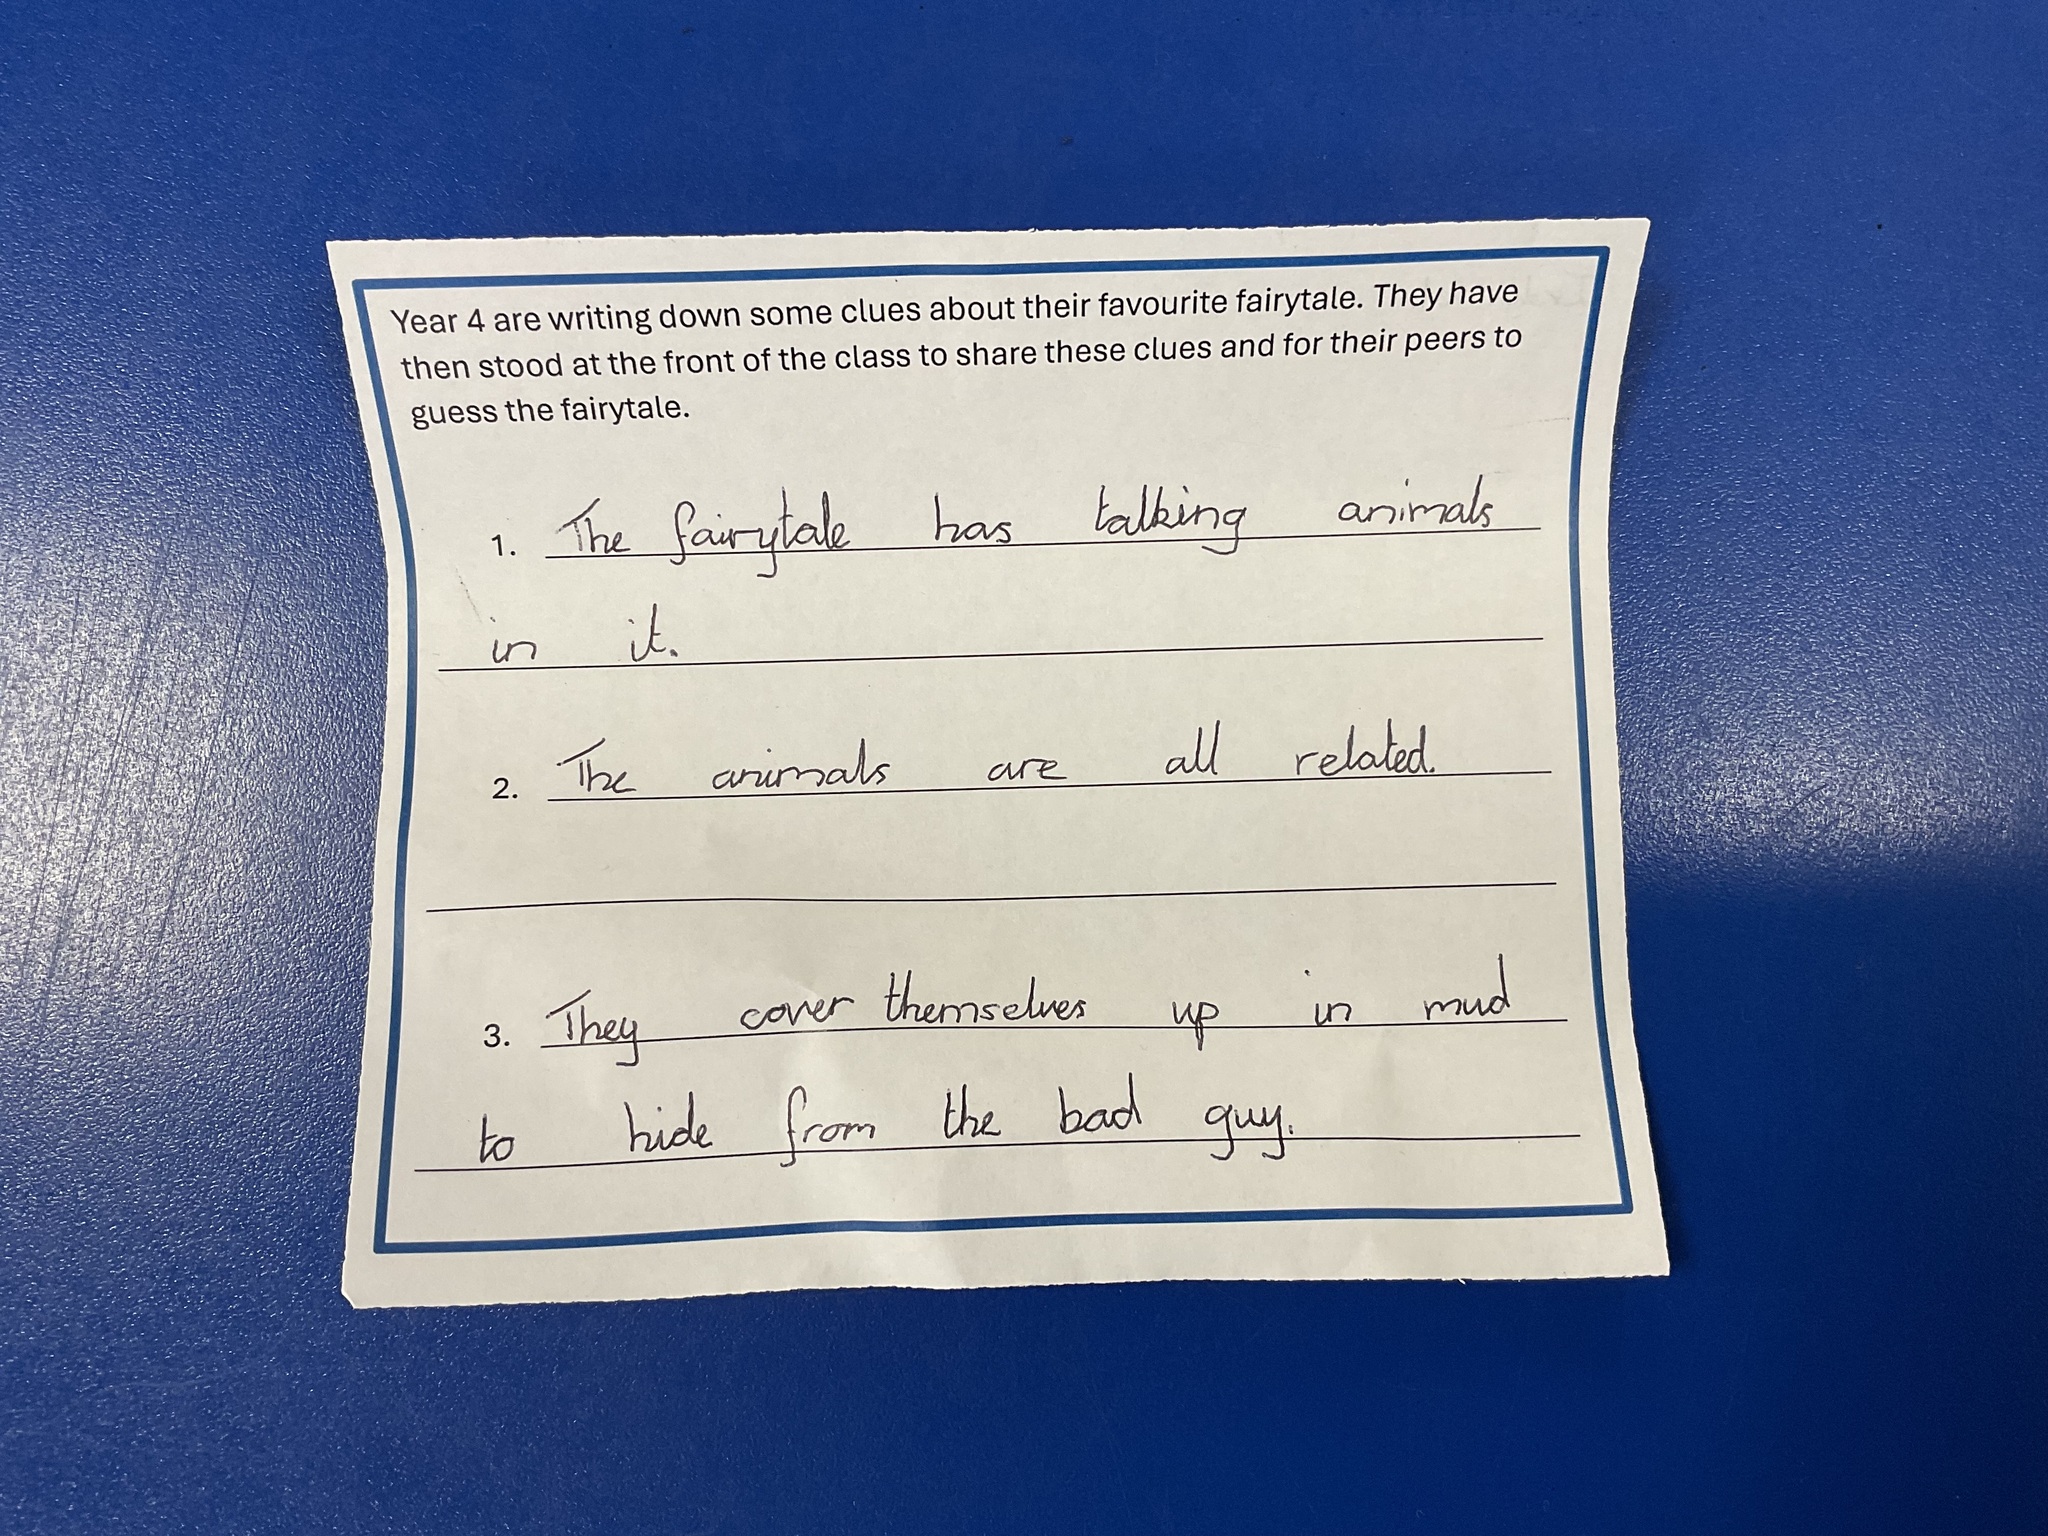 Year 4 are writing down some clues about their favourite fairytale. They have
then stood at the front of the class to share these clues and for their peers to
guess the fairytale.
1. The fairytale has talking animals
in it.
2. The animals are all related.
3. They cover themselves up in mud
to hide from the bad guy.